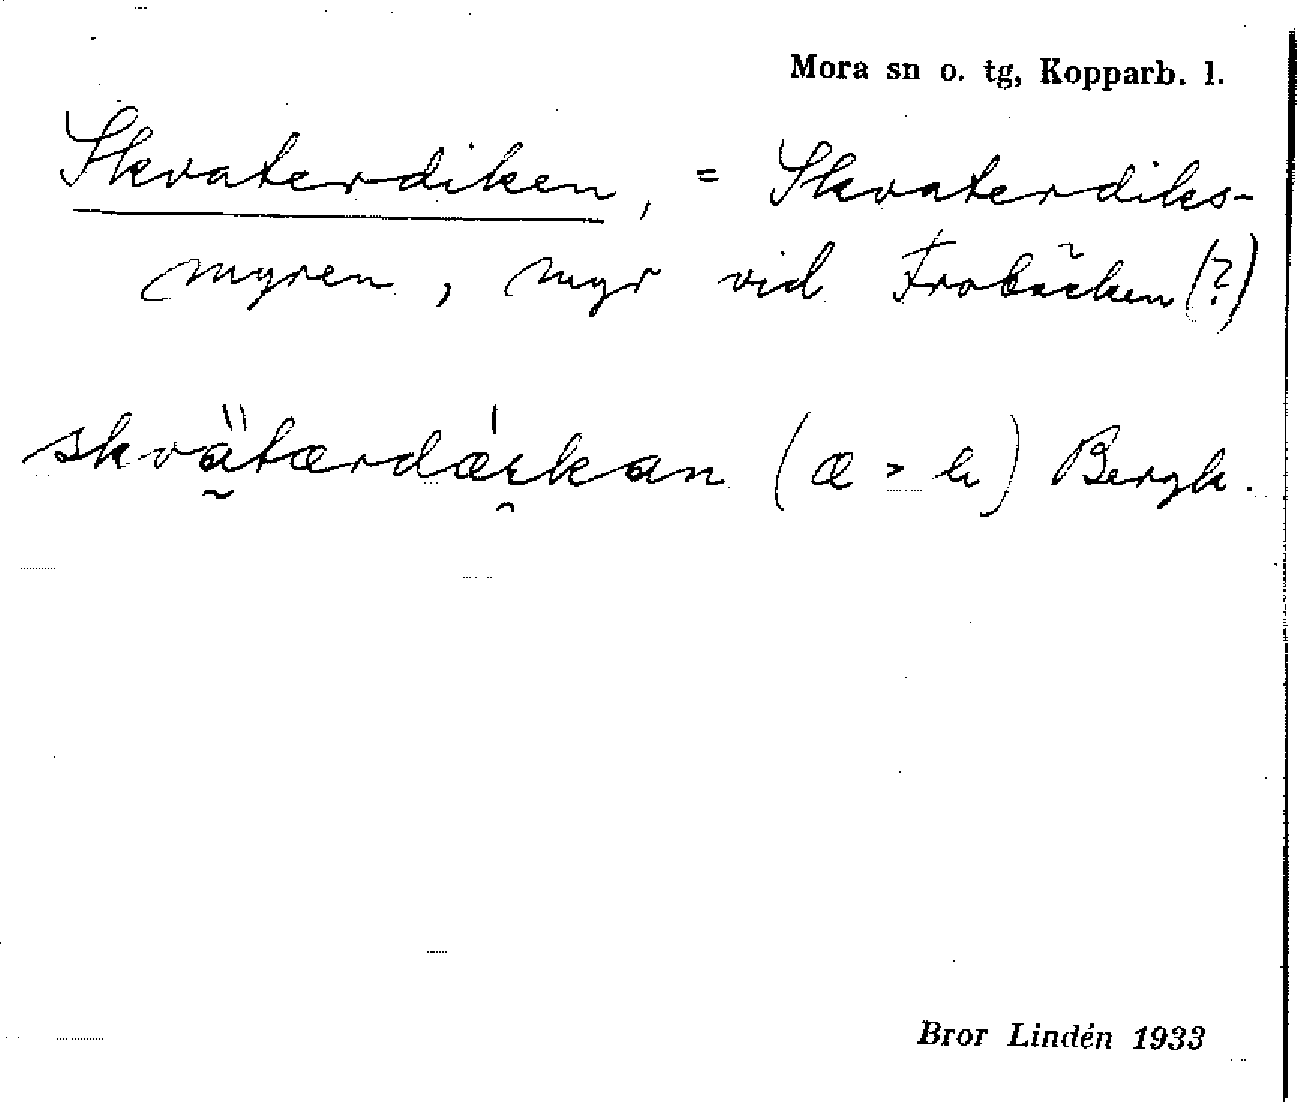 Mora sn o. tg, Kopparb. l.
Skvaterdiken, = Skvaterdiks-
myren, myr vid Frobäcken (?)
skvätærdæıkan (æ > ) Bergk.
Bror Lindén 1933